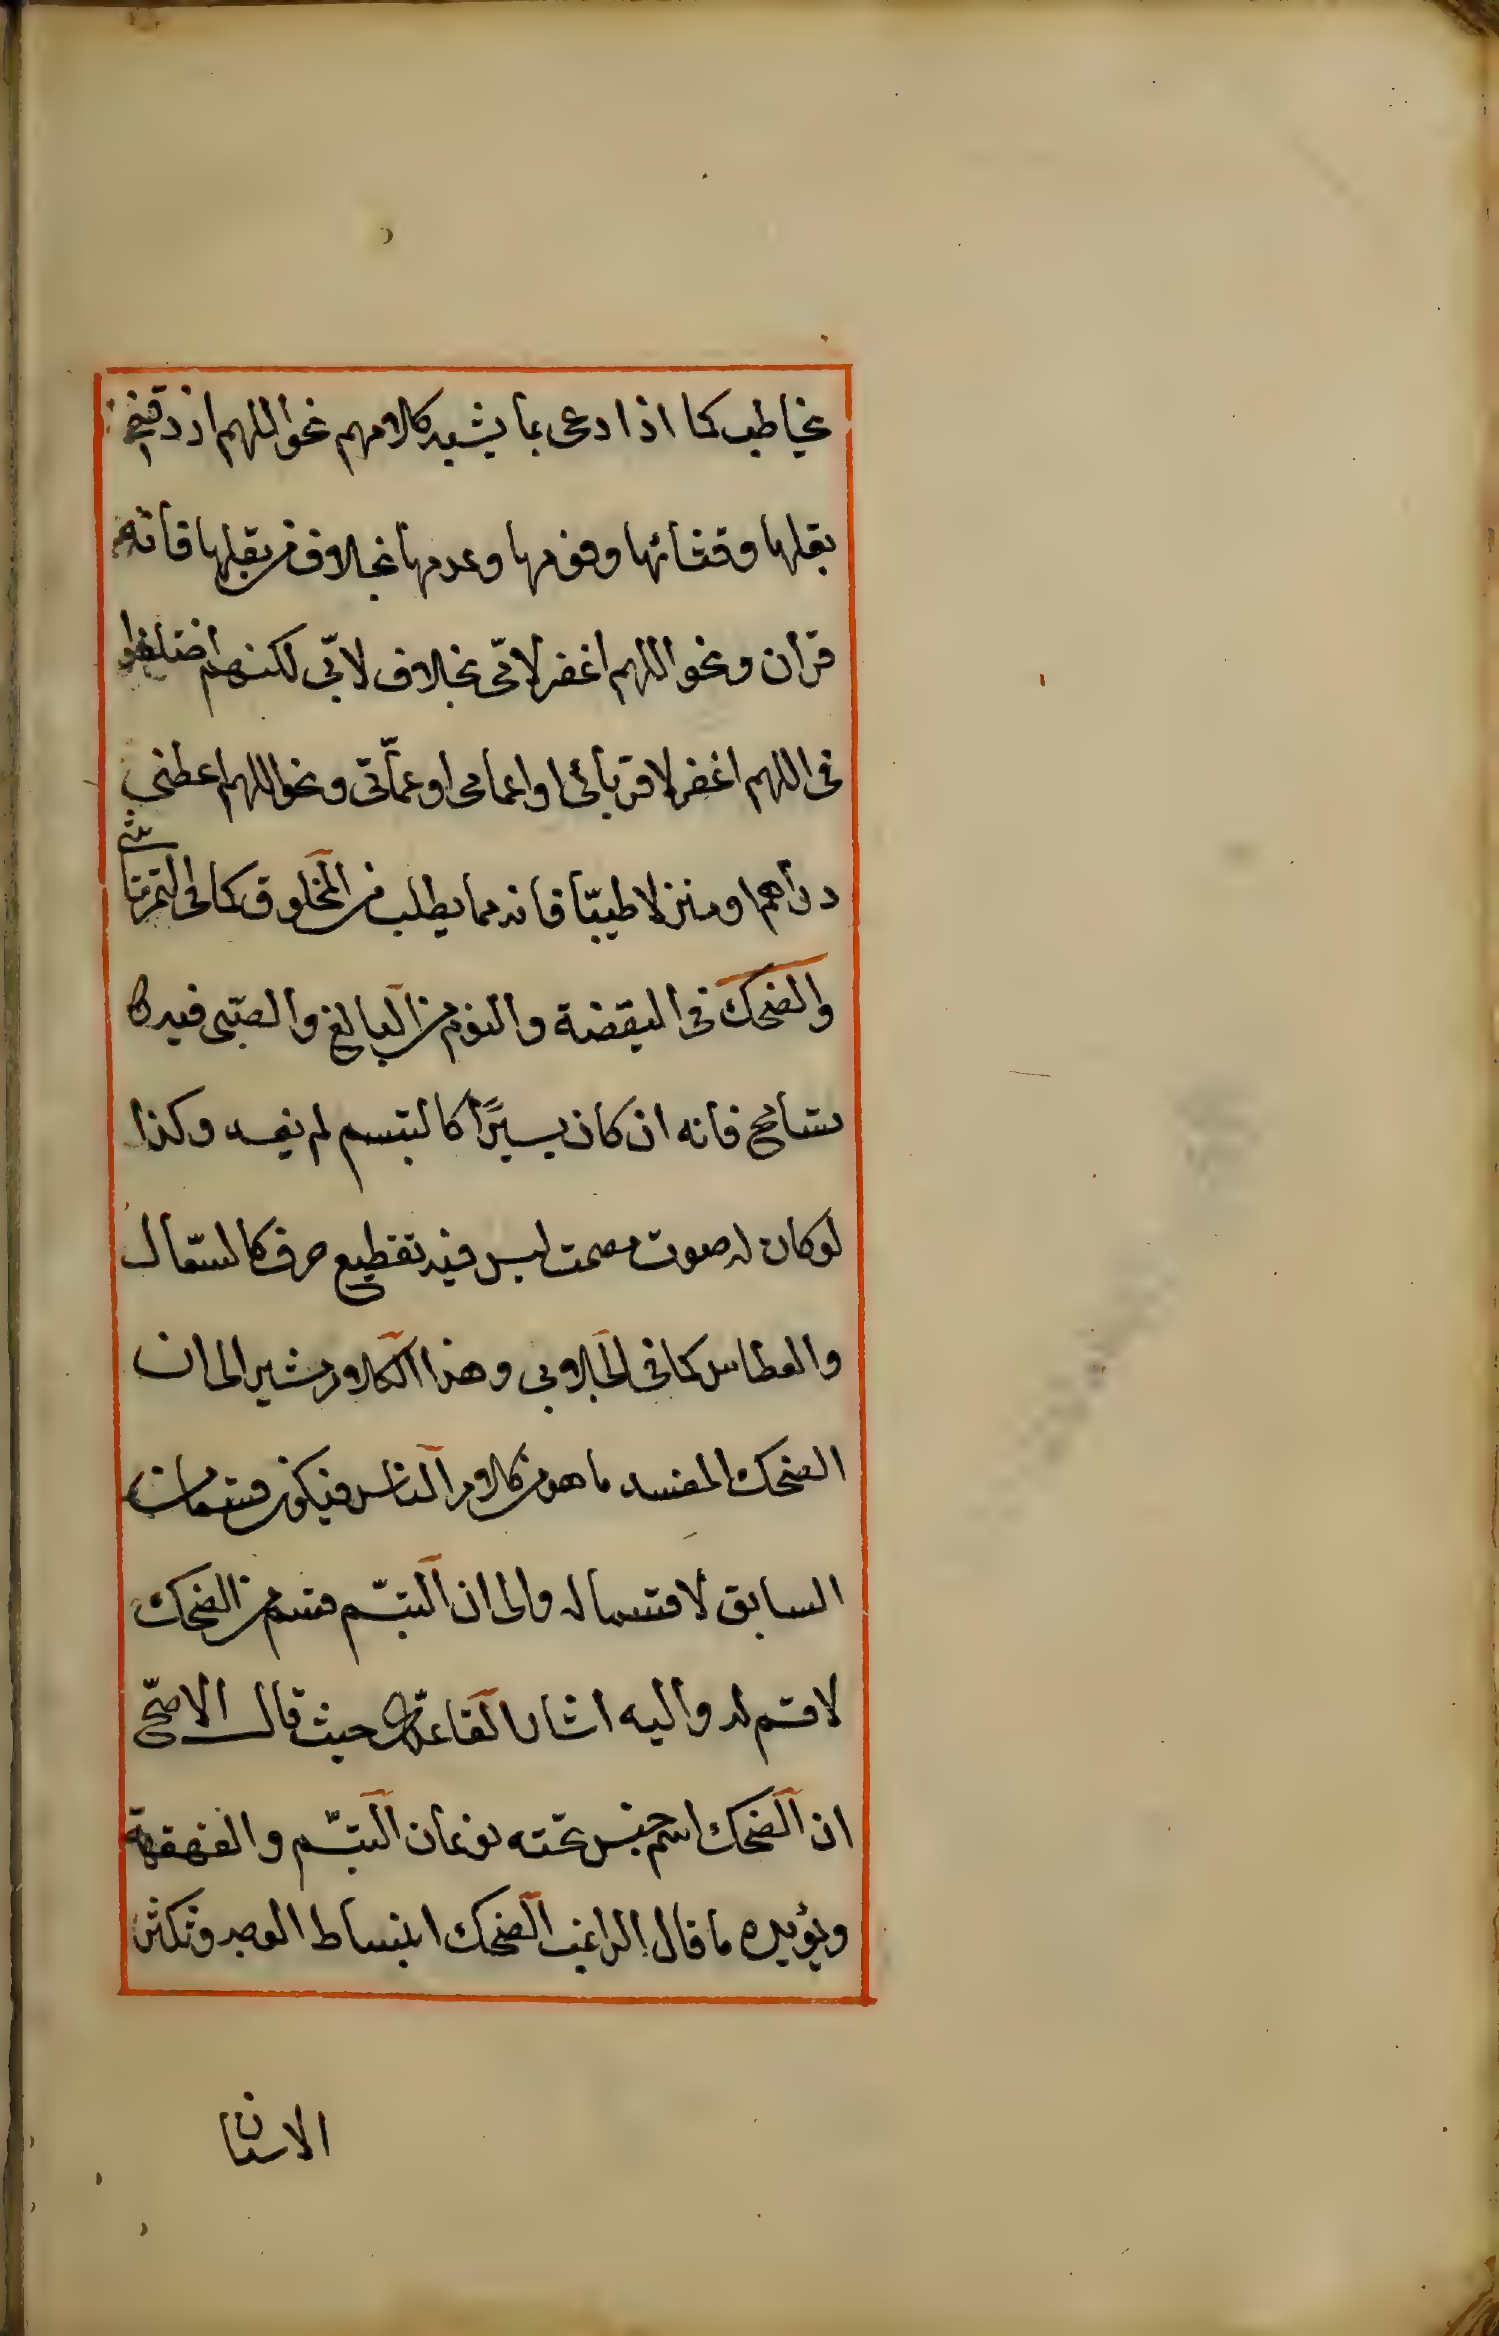 يخاطب كما اذا دعى بما يشبه كلامهم نحو اللهم ارزقني
بقلها وقثائها وفومها وعدسها بخلاف من بقلها فانه
قرآن ونحو اللهم اغفر لامّي بخلاف لابي لكنهم اختلفوا
في اللهم اغفر لاقربائي او اعمامي او عمّاتي ونحو اللهم اعطني
دراهم ومنزلا طيبّا فانه مما يطلب من المخلوق كما في التمرتاشي
والضحك في اليقضة والنوم من البالغ والصبّي فيه
تسامح فانه ان كان يسيرًا كالتبسم لم يفسد وكذا
لو كان له صوت مصمت ليس فيه تقطيع حرف كالسّعال
والعطاس كما في الجلابي وهذا الكلام مشير الى ان
الضحك المفسد ما هو من كلام الناس فيكون من قسمان
السابق لا قسما له والى ان التبسّم قسم من الضحك
لا قسم له واليه اشار القاعدي حيث قال الاصحّ
ان الضحك اسم جنس تحته نوعان التبسّم والقهقهة
ويؤيده ما قال الراغب الضحك انبساط الوجه وتكشر
الاسنان